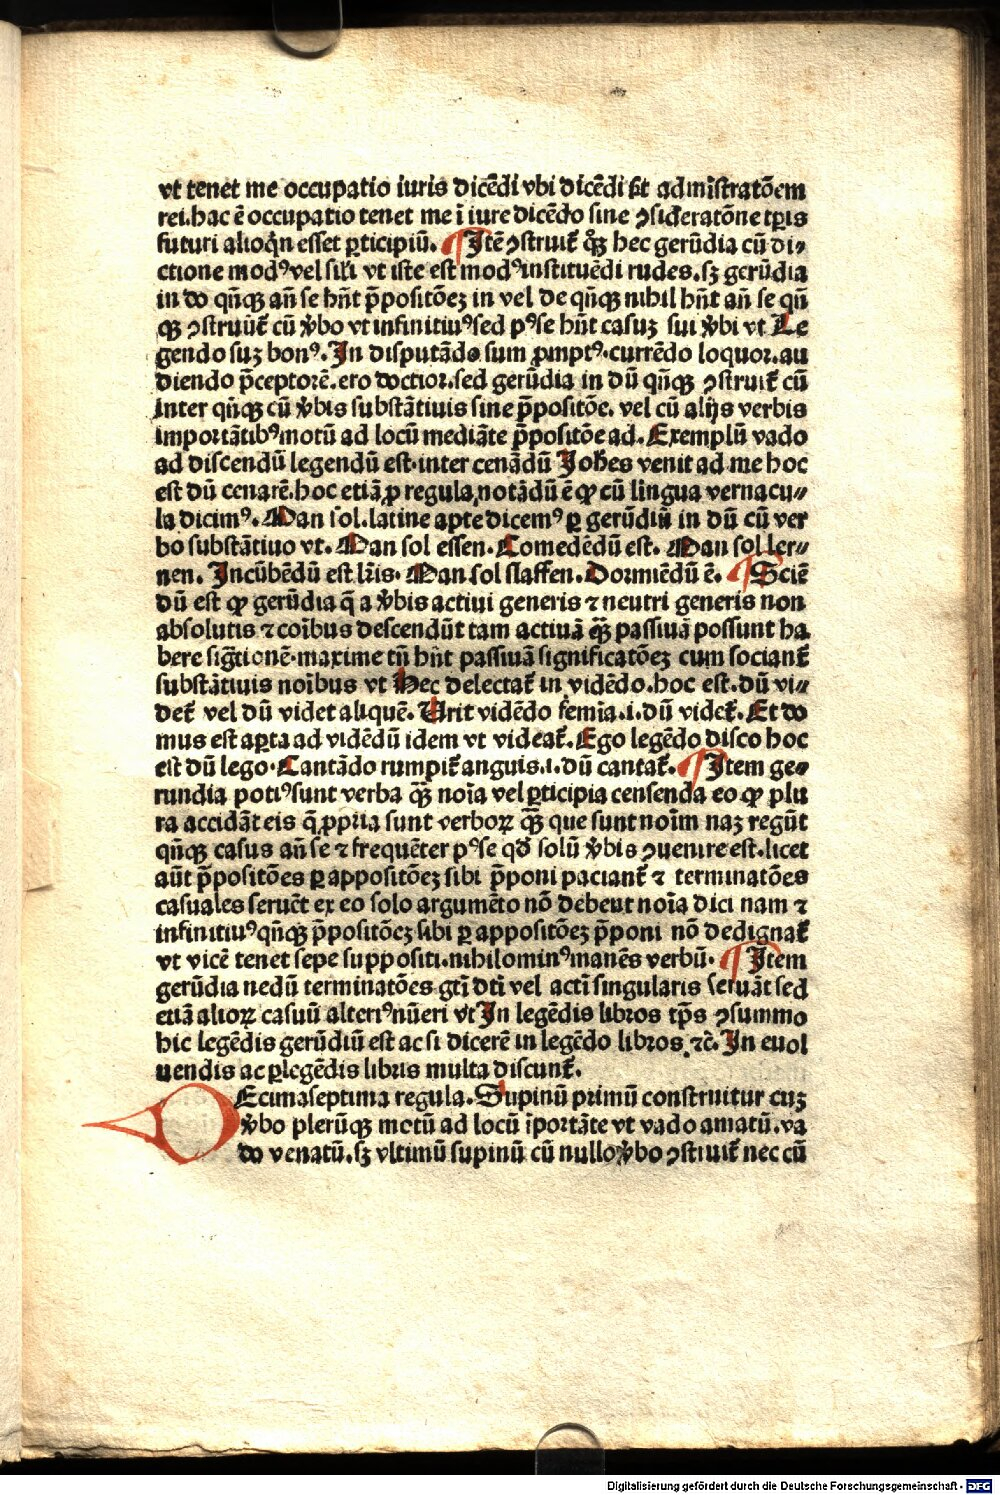 vt tenet me occupatio iuris dicēdi vbi dicēdi fit admīstratōem
rei.hac ē occupatio tenet me ī iure dicēdo sine ꝯsideratōne tꝑis
futuri alioq̄n esset ꝑticipiū. Itē ꝯstruit̄ hec gerūdia cū di⸗
ctione modꝰ vel sili vt iste est modꝰ instituēdi rudes.sꝫ gerūdia
in do qn̄qꝫ an̄ se hn̄t p̄positōeꝫ in vel de qn̄qꝫ nihil hn̄t an̄ se qn̄
qꝫ ꝯstruūt̄ cū v̄bo vt infinitiuꝰ sed pꝰ se hn̄t casuꝫ sui v̄bi vt Le
gendo suꝫ bonꝰ. In disputādo sum ꝓmptꝰ.currēdo loquor.au
diendo p̄ceptorē.ero doctior.sed gerūdia in dū qn̄qꝫ ꝯstruit̄ cū
inter qn̄qꝫ cū v̄bis substātiuis sine p̄positōe. vel cū alijs verbis
importātibꝰ motū ad locū mediāte p̄positōe ad. Exemplū vado
ad discendū legendū est.inter cenādū Johēs venit ad me hoc
est dū cenarē.hoc etiā ꝓ regula notādū ē ꝙ cū lingua vernacu⸗
la dicimꝰ. Man sol.latine apte dicemꝰ ꝑ gerūdiū in dū cū ver
bo substātiuo vt. Man sol essen. Comedēdū est. Man sol ler⸗
nen. Incūbēdū est lr̄is. Man sol slaffen. Dormiēdū ē. Sciē
dū est ꝙ gerūdia q̄ a v̄bis actiui generis ⁊ neutri generis non
absolutis ⁊ coībus descendūt tam actiuā qꝫ̄ passiuā possunt ha
bere sigt̄ionē.maxime tn̄ hn̄t passiuā significatōeꝫ cum sociant̄
substātiuis noībus vt Hec delectat̄ in vidēdo.hoc est.dū vi⸗
det̄ vel dū videt aliquē. Urit vidēdo femīa.i.dū videt̄. Et do
mus est aꝑta ad vidēdū idem vt videat̄. Ego legēdo disco hoc
est dū lego. Cantādo rumpit̄ anguis.i.dū cantat̄. Item ge⸗
rundia potiꝰ sunt verba qꝫ̄ noīa vel ꝑticipia censenda eo ꝙ plu
ra accidāt eis q̄ ꝓpria sunt verboꝝ qꝫ̄ que sunt noīm naꝫ regūt
qn̄qꝫ casus an̄ se ⁊ frequēter pꝰ se qd̄ solū v̄bis ꝯuenire est.licet
aūt p̄positōes ꝑ appositōeꝫ sibi p̄poni paciant̄ ⁊ terminatōes
casuales seruēt ex eo solo argumēto nō debent noīa dici nam ⁊
infinitiuꝰ qn̄qꝫ p̄positōeꝫ sibi ꝑ appositōeꝫ p̄poni nō dedignat̄
vt vicē tenet sepe suppositi.nihilominꝰ manēs verbū. Item
gerūdia nedū terminatōes gtī dtī vel actī singularis seruāt sed
etiā alioꝝ casuū alteriꝰ nūeri vt In legēdis libros tp̄s ꝯsummo
hic legēdis gerūdiū est ac si dicerē in legēdo libros ⁊c̄. In euol
uendis ac ꝑlegēdis libris multa discunt̄.
Decimaseptima regula. Supinū primū construitur cuꝫ
v̄bo plerūqꝫ motū ad locū īportāte vt vado amatū.va
do venatū.sꝫ vltimū supinū cū nullo v̄bo ꝯstruit̄ nec cū
Digitalisierung gefördert durch die Deutsche Forschungsgemeinschaft - DFG